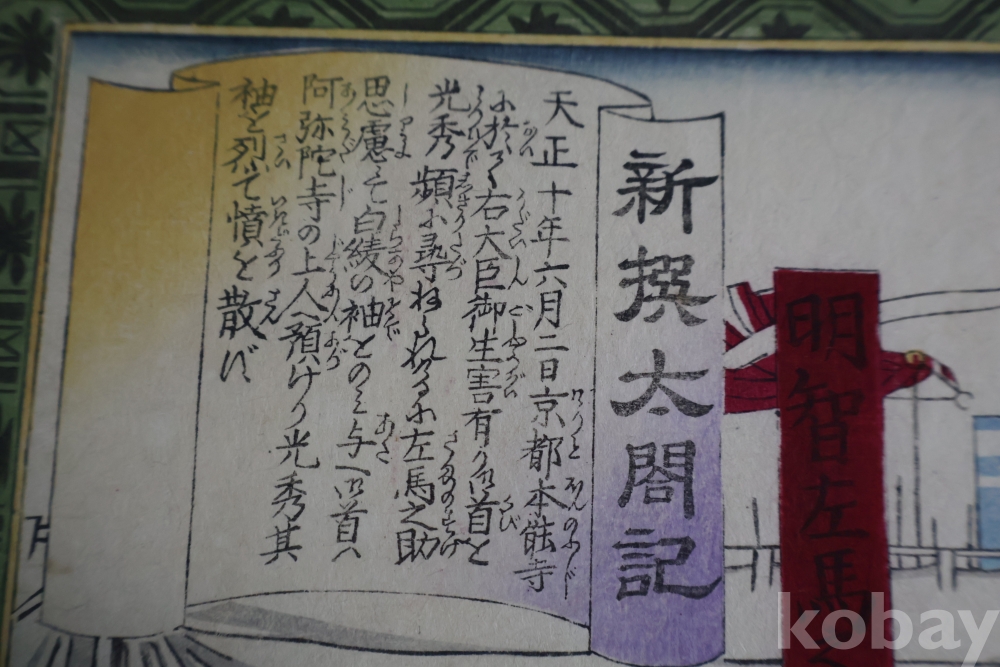 新撰太閤記
明智左馬
天正十年六月二日京都本能寺
に於て右大臣御生害有り御首と
光秀頻に尋ねらるゝに左馬之助
思慮して白綾の袖とのミ与へ御首ハ
阿弥陀寺の上人へ預けり光秀其
袖を烈て憤を散ず
kobay